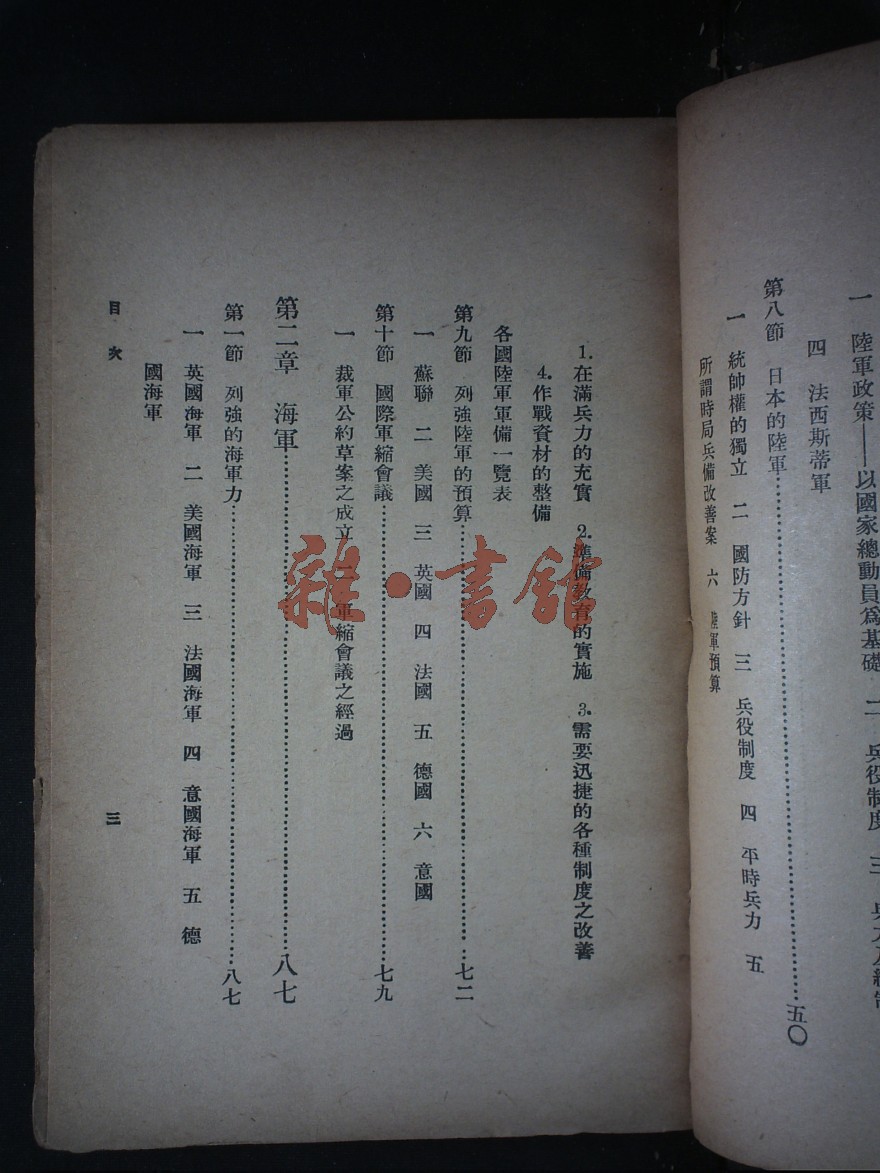 一　陸軍政策——以國家總動員爲基礎　二　兵役制度　三　兵力及編制
四　法西斯蒂軍
第八節　日本的陸軍……五〇
一　統帥權的獨立　二　國防方針　三　兵役制度　四　平時兵力　五
所謂時局兵備改善案　六　陸軍預算
1.在滿兵力的充實　2.準備教育的實施　3.需要迅捷的各種制度之改善
4.作戰資材的整備
各國陸軍軍備一覽表
第九節　列強陸軍的預算……七二
一　蘇聯　二　美國　三　英國　四　法國　五　德國　六　意國
第十節　國際軍縮會議……七九
一　裁軍公約草案之成立　二　軍縮會議之經過
第二章　海軍……八七
第一節　列強的海軍力……八七
一　英國海軍　二　美國海軍　三　法國海軍　四　意國海軍　五　德
國海軍
目次
三
雜·書館